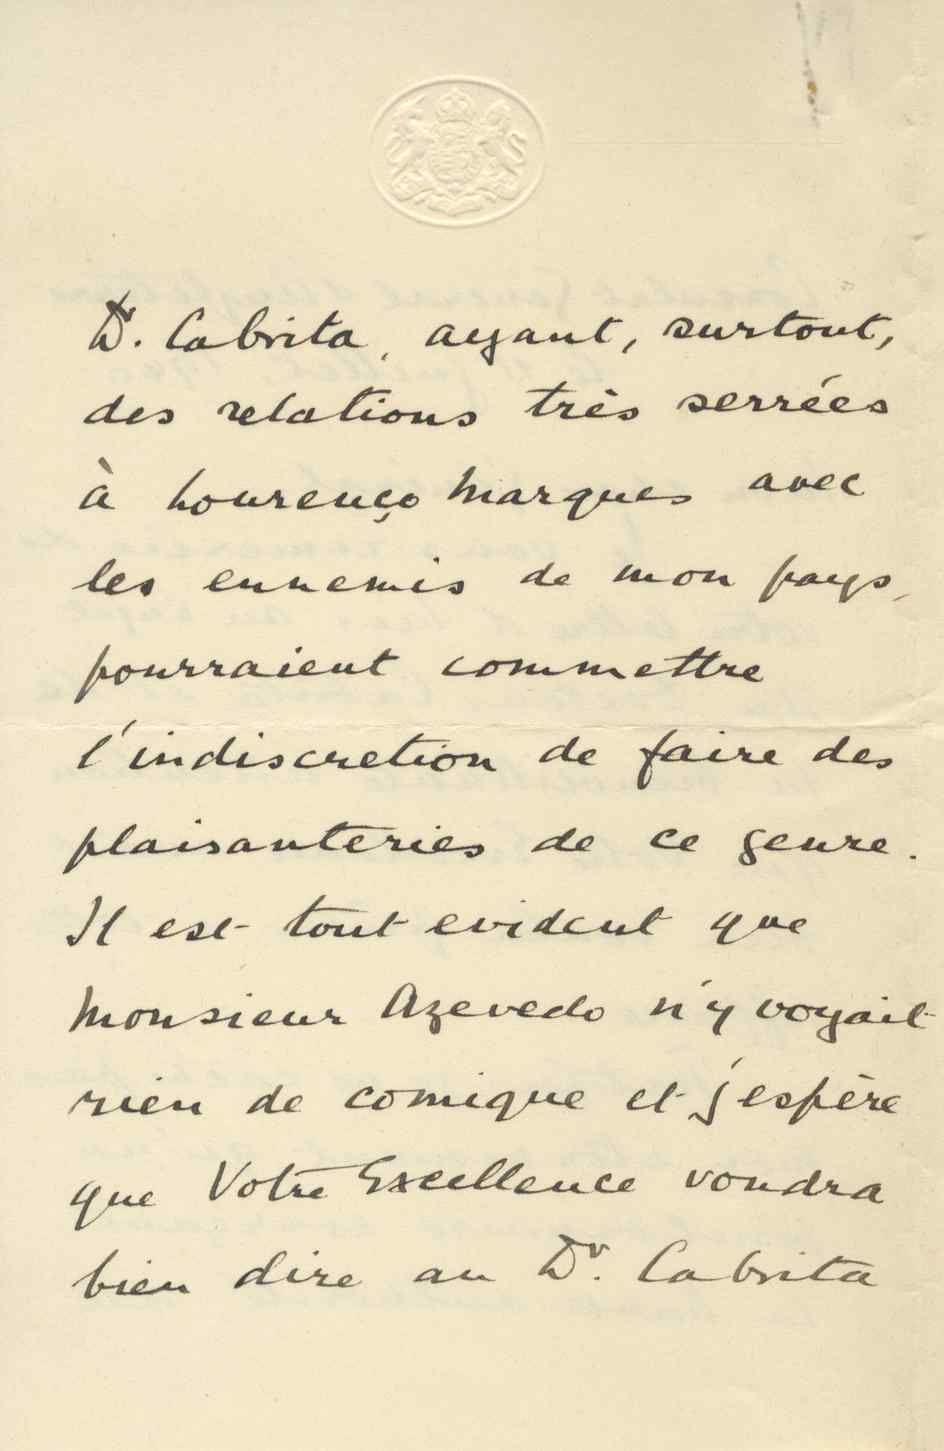 Dr. Cabrita, ayant, surtout,
des relations très serrées
à Lourenço Marques avec
les ennemis de mon pays,
pourraient commettre
l'indiscretion de faire des
plaisanteries de ce genre.
Il est tout evident que
Monsieur Azevedo n'y voyait
rien de comique et j'espère
que Votre Excellence voudra
bien dire au Dr. Cabrita